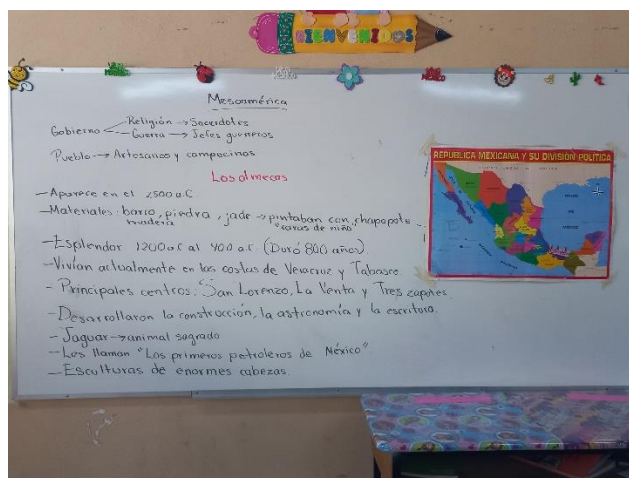 BIENVENIDOS
Mesoamérica
Gobierno
Religión → Sacerdotes
Guerra → Jefes guerreros
Pueblo → Artesanos y campesinos
Los olmecas
- Aparece en el 2500 a.C.
- Materiales: barro, piedra, jade → pintaban con chapopote
madera "caras de niño"
- Esplendor 1200 a.C al 400 a.C. (Duró 800 años)
- Vivían actualmente en las costas de Veracruz y Tabasco.
- Principales centros: San Lorenzo, La Venta y Tres zapotes.
- Desarrollaron la construcción, la astronomía y la escritura.
- Jaguar → animal sagrado
- Les llaman "Los primeros petroleros de México"
- Esculturas de enormes cabezas.
REPUBLICA MEXICANA Y SU DIVISIÓN POLITICA